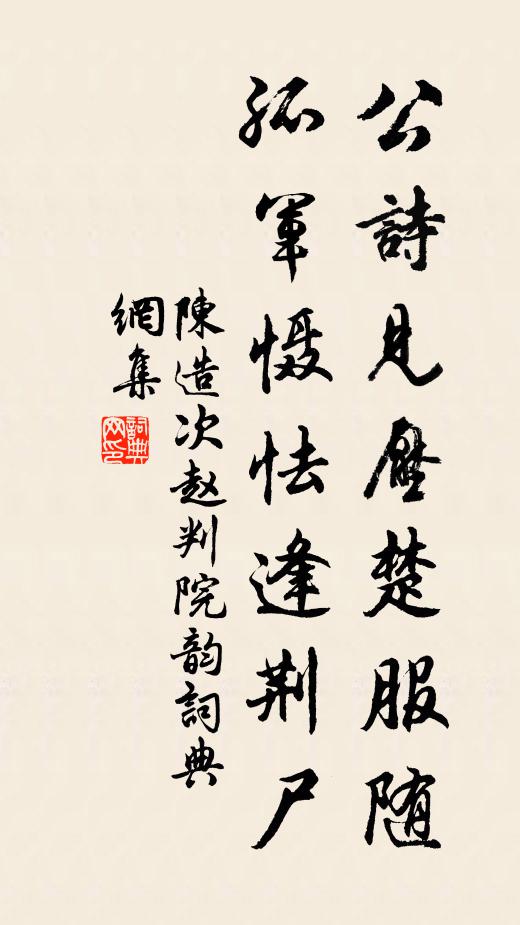 公詩見壓楚服随
孤軍慑怯逢荆尸
陳造次赵判院韵詞典
網集
詞典网印